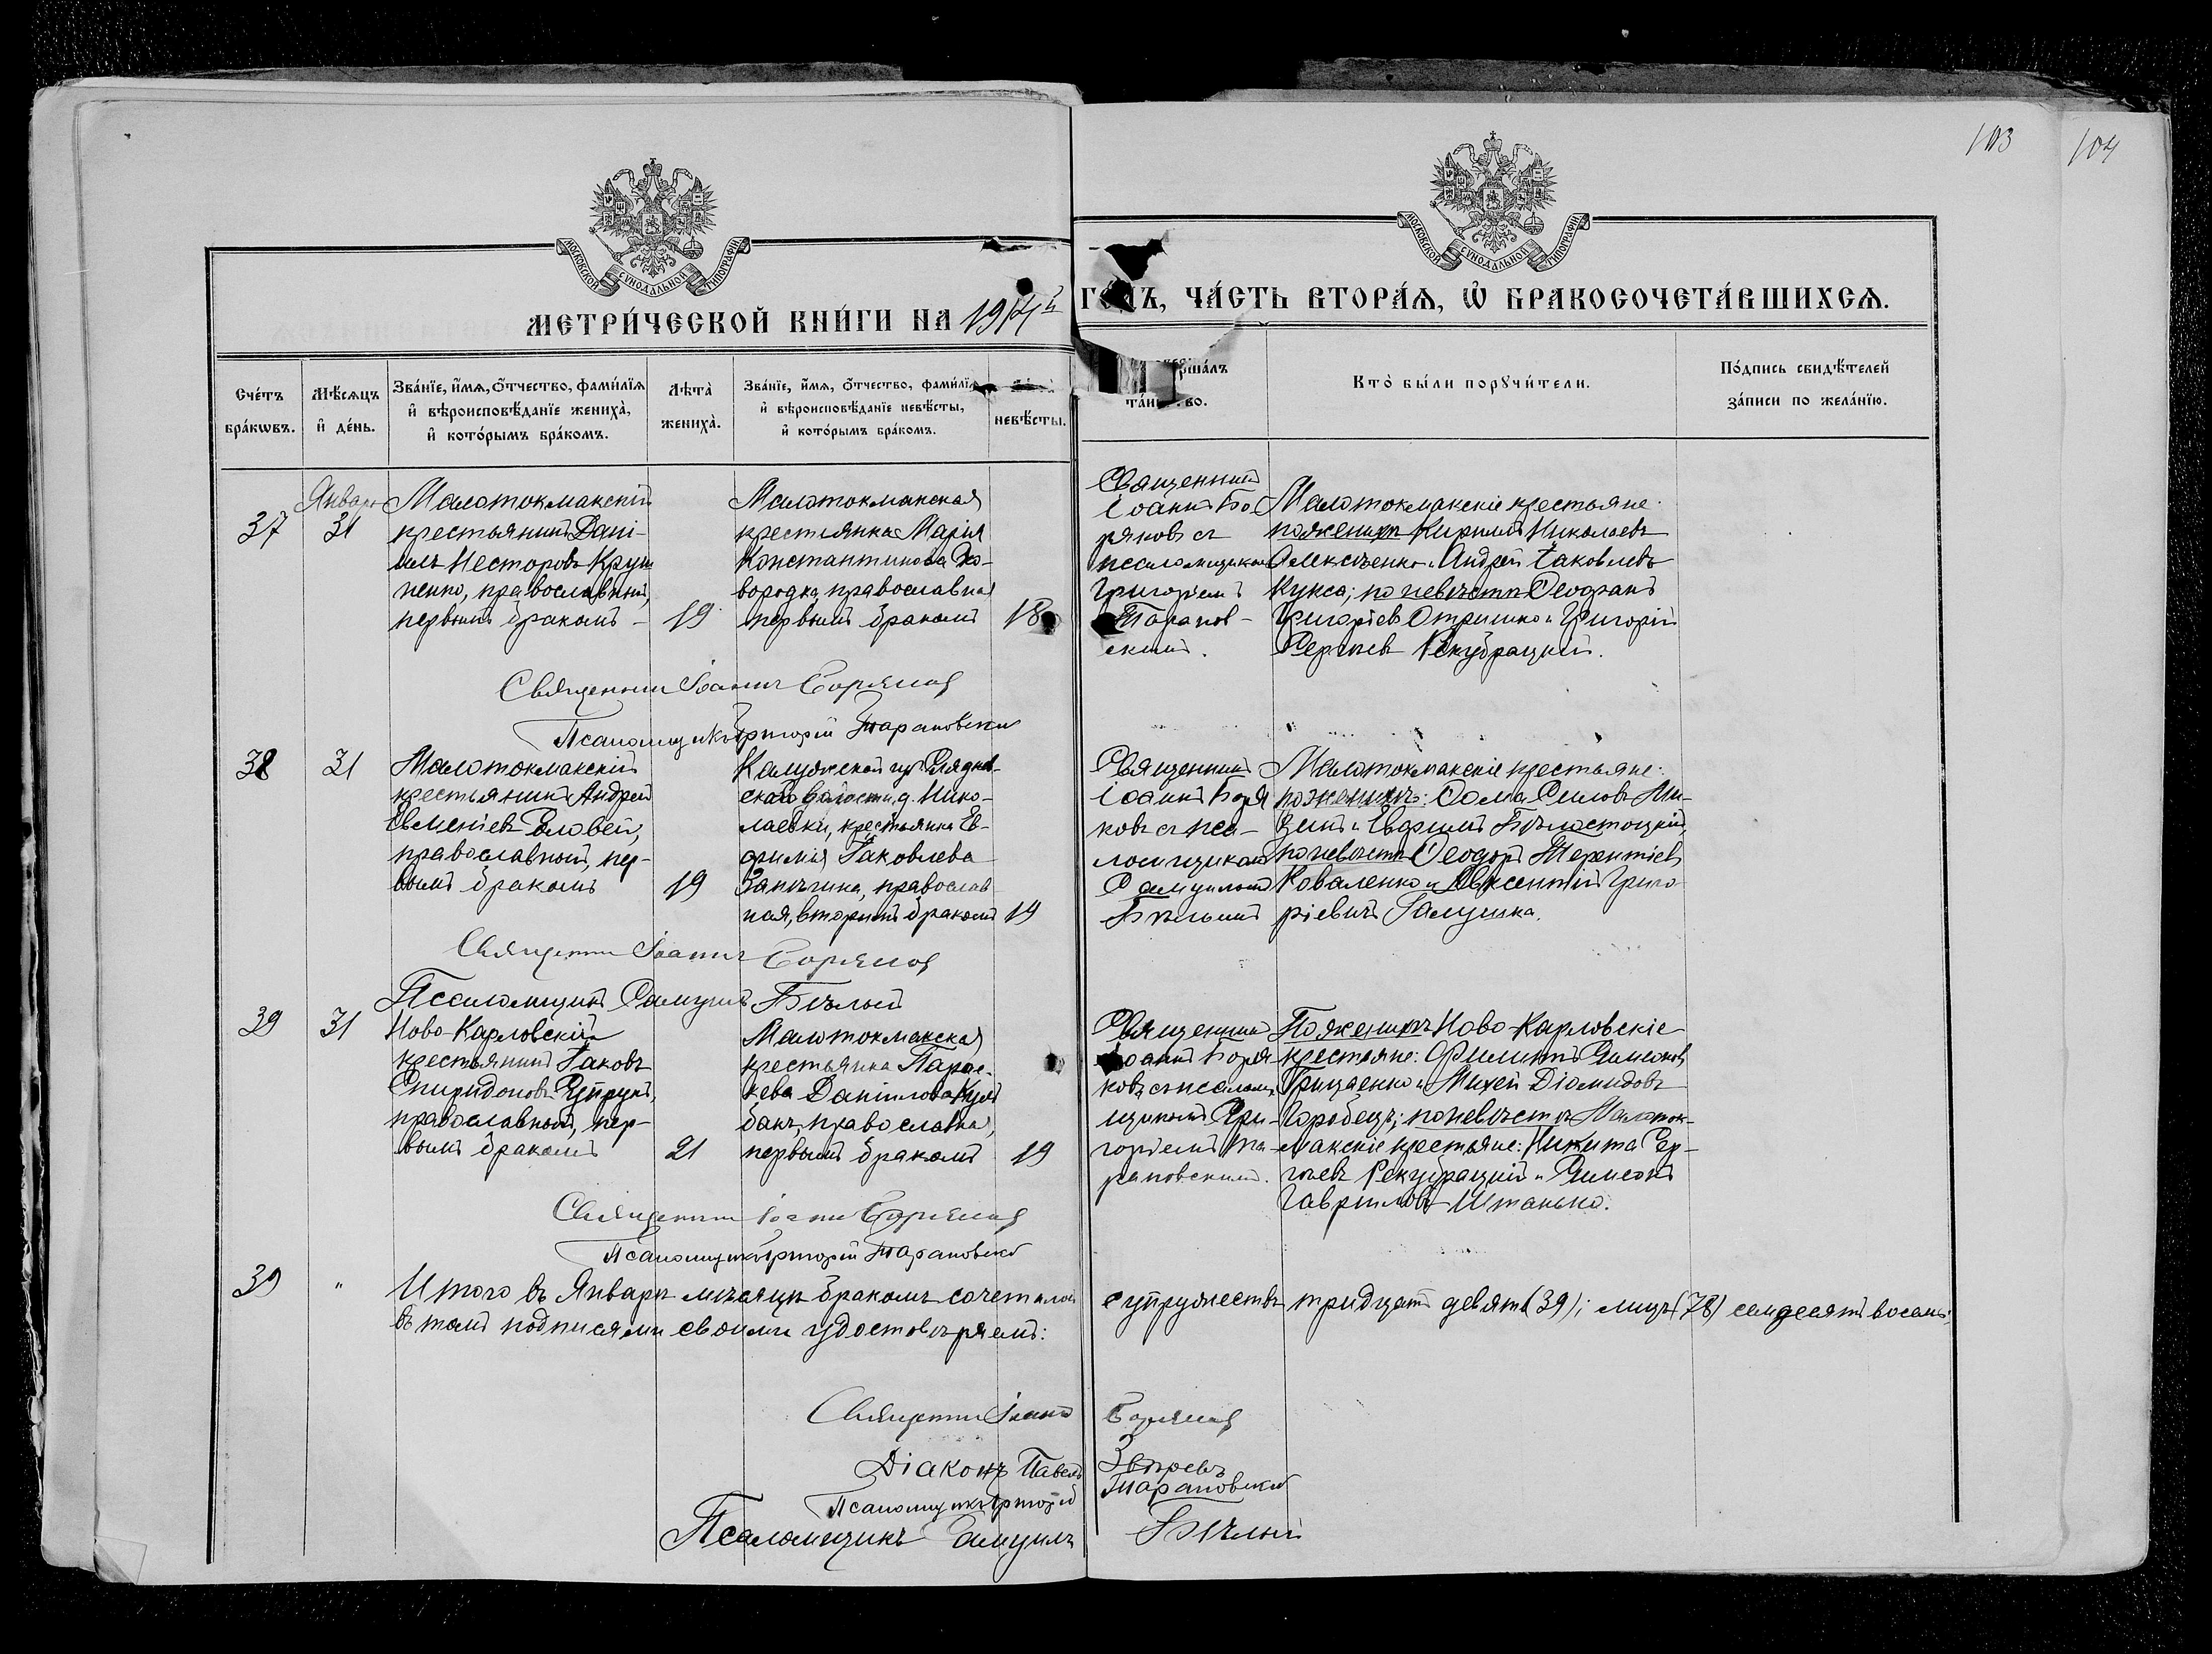 103
104
МОСКОВСКОЙ СѴНОДАЛЬНОЙ ТИПОГРАФІИ
МОСКОВСКОЙ СѴНОДАЛЬНОЙ ТИПОГРАФІИ
МЕТРИ́ЧЕСКОЙ КНИ́ГИ НА 1914й
ГО́ДЪ, ЧА́СТЬ ВТОРА́Я, Ѿ БРАКОСОЧЕТА́ВШИХСЯ.
Сче́тъ бра́кѡвъ.
Мѣ́сяцъ и҆ де́нь.
Зва́нїе, и҆́мя, ѻ҆́тчество, фами́лїя
и҆ вѣроисповѣ́данїе жениха̀,
и҆ кото́рымъ бра́комъ.
Лѣ́та̀ жениха̀.
Зва́нїе, и҆́мя, ѻ҆́тчество, фами́лїя
и҆ вѣроисповѣ́данїе невѣ́сты,
и҆ кото́рымъ бра́комъ.
невѣ́сты.
Кто̀ бы́ли порꙋчи́тели.
По́дпись свидѣ́телей
за́писи по жела́нїю.
37
Январь
31
Малотокмакскій
крестьянинъ Дані-
илъ Несторовъ
ненко, православный,
первымъ бракомъ -
19
Малотокмакская
крестьянка Марія
Константинова
православная
первымъ бракомъ
18
Священникъ
Іоаннъ Бо
ряковъ съ
псаломщикомъ
Григоріемъ
Таранов-
скимъ.
Малотокмакскіе крестьяне:
по женихѣ Кирилъ Николаевъ
Алексѣенко и Андрей Іаковлевъ
Кукса; по невѣстѣ Ѳеофанъ
Григоріевъ Отришко и Григорій
Сергіевъ Рекубрацкій.
Священникъ Іоаннъ Боряковъ
Псаломщикъ Григорій Тарановскій
38
31
Малотокмакскій
крестьянинъ Андрей
Евменіевъ
православный, пер-
вымъ бракомъ
19
Калужской губ.
ской волости, д. Нико-
лаевки, крестьянка Ев-
фимія Іаковлева
православ
ная, вторымъ бракомъ
19
Священникъ
Іоаннъ Боря
ковъ съ пса-
ломщикомъ
Самуиломъ
Бѣлымъ
Малотокмакскіе крестьяне:
по женихѣ: Ѳома Силовъ
и Евфимъ Бѣлостоцкій,
по невѣстѣ Ѳеодоръ Терентіевъ
Коваленко и Авксентій Григо
ріевичъ Галушка.
Священникъ Іоаннъ Боряковъ
Псаломщикъ Самуилъ Бѣлый
39
31
Ново-Карловскій
крестьянинъ Іаковъ
Спиридоновъ Чупрунъ,
православный, пер-
вымъ бракомъ
21
Малотокмакская
крестьянка Парас-
кева Даніилова Куль
бака, православная,
первымъ бракомъ
19
Священникъ
Іоаннъ Боря
ковъ съ псалом-
щикомъ Гри-
горіемъ Та-
рановскимъ.
По женихѣ Ново-Карловскіе
крестьяне: Филиппъ Симеоновъ
Грицаенко и Михей Діомидовъ
Горобецъ; по невѣстѣ Малоток-
макскіе крестьяне: Никита Сер-
гіевъ Рекубрацкій и Симеонъ
Гавриловъ Штанько.
Священникъ Іоаннъ Боряковъ
Псаломщикъ Григорій Тарановскій
39
"
Итого въ Январѣ мѣсяцѣ бракомъ сочеталось супружествъ тридцать девять (39); лицъ (78) семдесятъ восемь;
въ томъ подписями своими удостовѣряемъ:
Священникъ Іоаннъ Боряковъ
Діаконъ Павелъ Звѣревъ
Псаломщикъ Григорій Тарановскій
Псаломщикъ Самуилъ Бѣлый